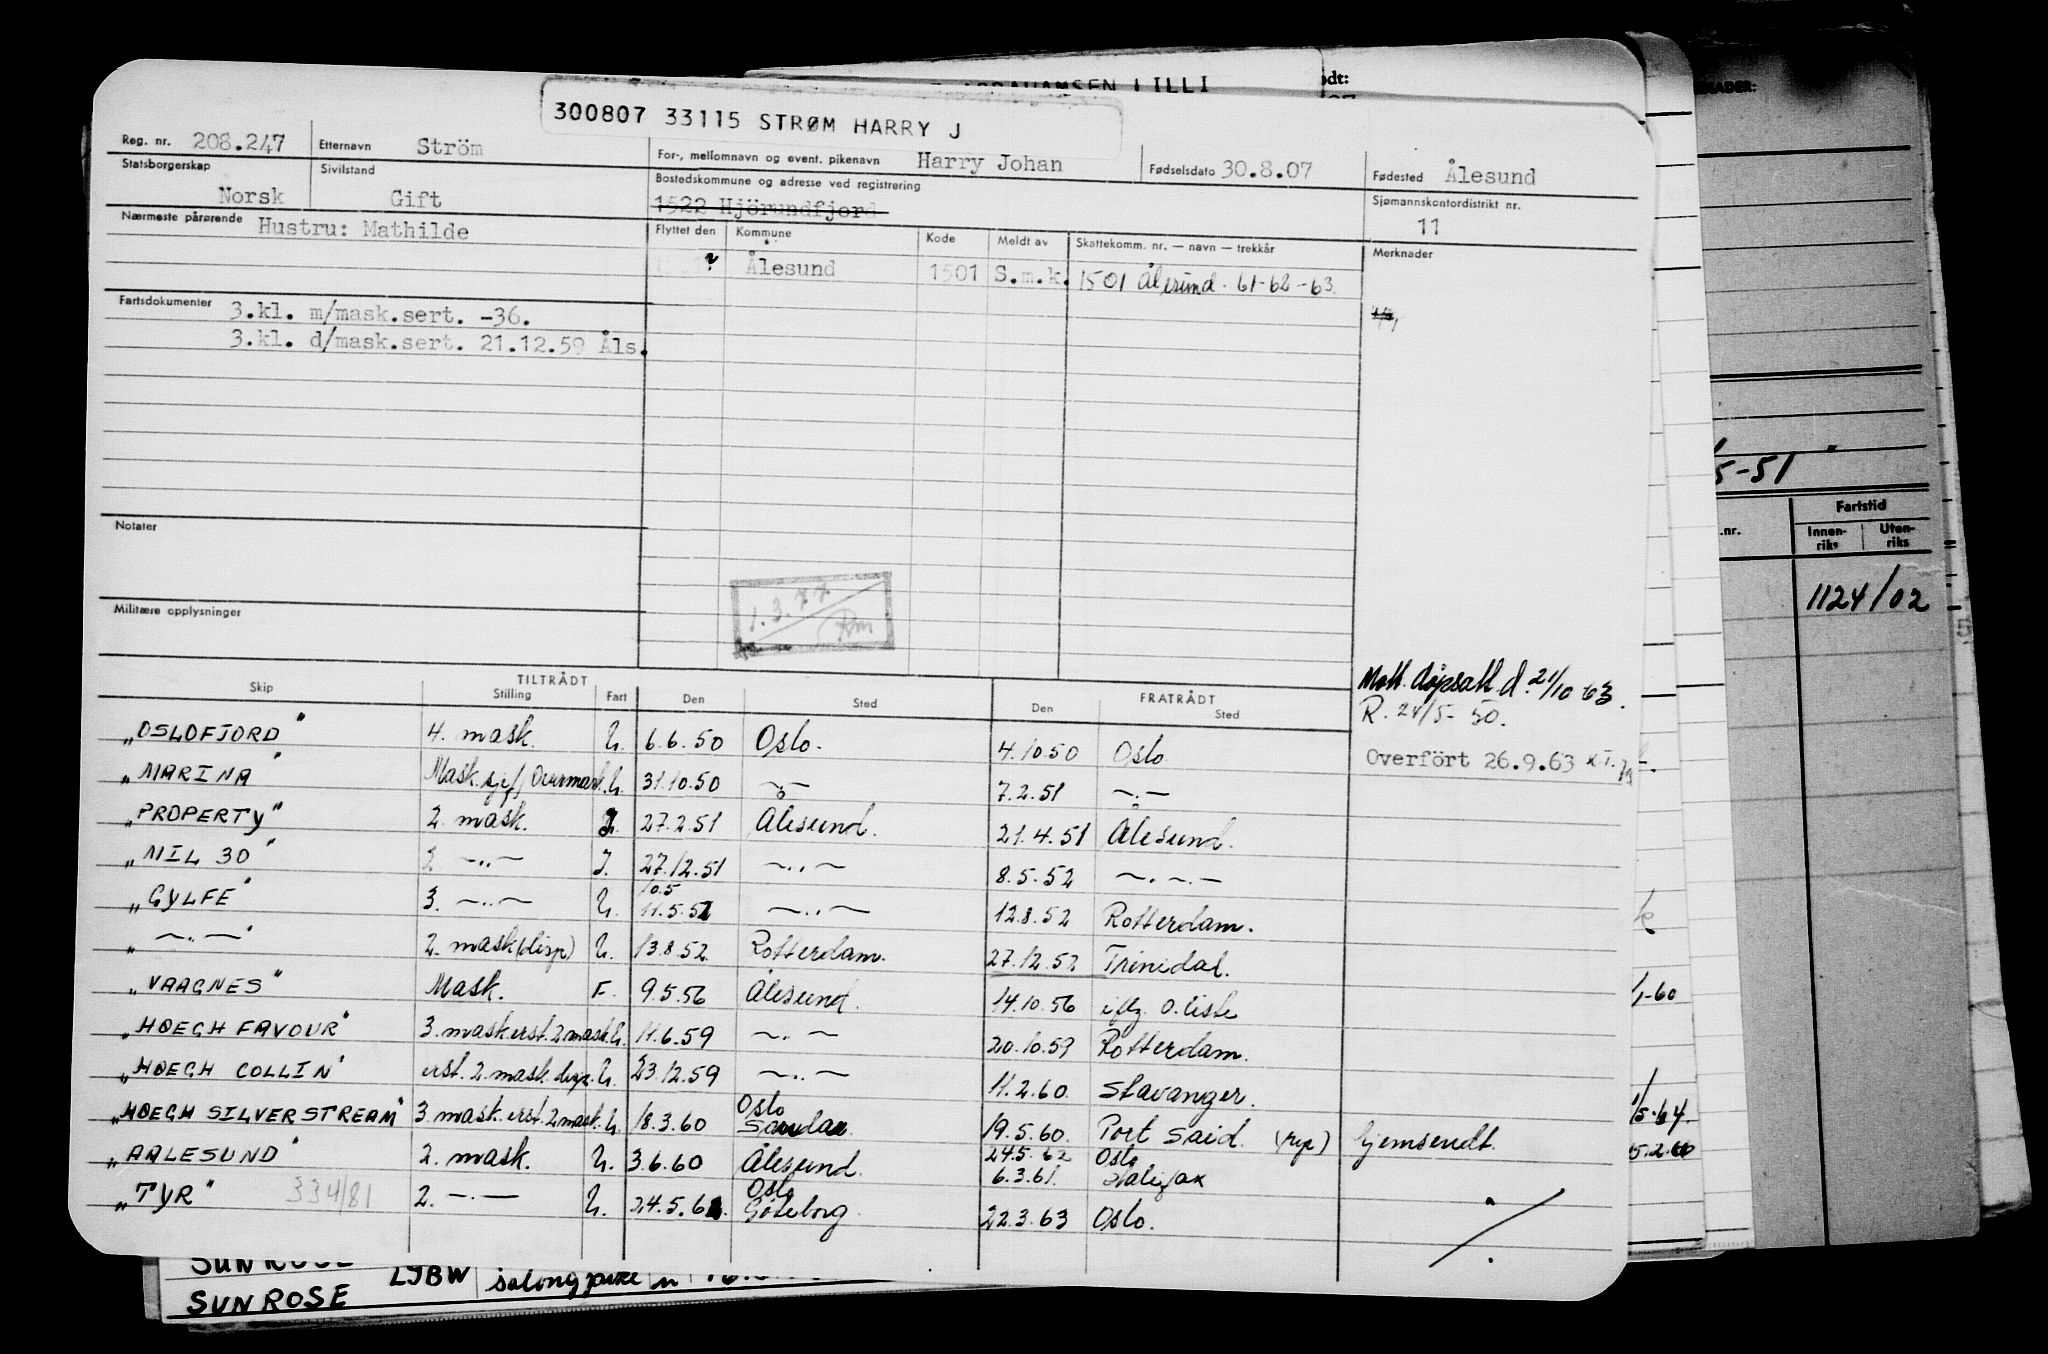 ABRAHAMSEN LILLI
300807 33115 STRØM HARRY J
Reg. nr. 208.247 Etternavn Ström For-, mellomnavn og event. pikenavn Harry Johan Fødselsdato 30.8.07 Fødested Ålesund
Statsborgerskap Norsk Sivilstand Gift Bostedskommune og adresse ved registrering 1522 Hjörundfjord Sjømannskontordistrikt nr. 11
Nærmeste pårørende Hustru: Mathilde Flyttet den Kommune Kode Meldt av Skattekomm. nr. — navn — trekkår Merknader
Ålesund 1501 S.m.k. 1501 Ålesund. 61-62-63
Fartsdokumenter 3.kl. m/mask.sert. -36.
3.kl. d/mask.sert. 21.12.59 Åls.
Notater
1.3.77
Rm
Militære opplysninger
Mott. döpsatt. d. 21/10-63.
R. 24/5-50.
Overfört 26.9.63
TILTRÅDT FRATRÅDT
Skip Stilling Fart Den Sted Den Sted
"OSLOFJORD" 4. mask. U. 6.6.50 Oslo. 4.10.50 Oslo
"MARINA" Mask.sjef/ U. 31.10.50 —"— 7.2.51 —.—
"PROPERTY" 2. mask. 27.2.51 Ålesund. 21.4.51 Ålesund.
"MIL 30" —..— J. 27.12.51 —..— 8.5.52 —.—.—
"GYLFE" 3. —..— U. 10.5 11.5.52 —..— 12.8.52 Rotterdam.
"—..—" 2. mask(disp) U. 13.8.52 Rotterdam. 27.12.52 Trinidad.
"VAAGNES" Mask. F. 9.5.56 Ålesund. 14.10.56 iflg. O. liste
"HØEGH FAVOUR" 3. mask.erst.2mask. U. 11.6.59 —..— 20.10.59 Rotterdam.
"HØEGH COLLIN" erst. 2. mask. disp. U. 23.12.59 —..— 11.2.60. Stavanger.
"HØEGH SILVERSTREAM" 3.mask.erst.2mask. U. 18.3.60 Oslo 19.5.60. Port Said. (syk) hjemsendt.
"AALESUND" 2. mask. U. 3.6.60 Ålesund. 24.5.62 Oslo 6.3.61. Halifax
"TYR" 334/81 2. —.— U. 24.5.62. Oslo Göteborg. 22.3.63 Oslo.
SUN ROSE
SUN ROSE LJBW salongpike u
5-51
.nr. Fartstid
Innen-riks Uten-riks
1124/02
1-60
/5-64.